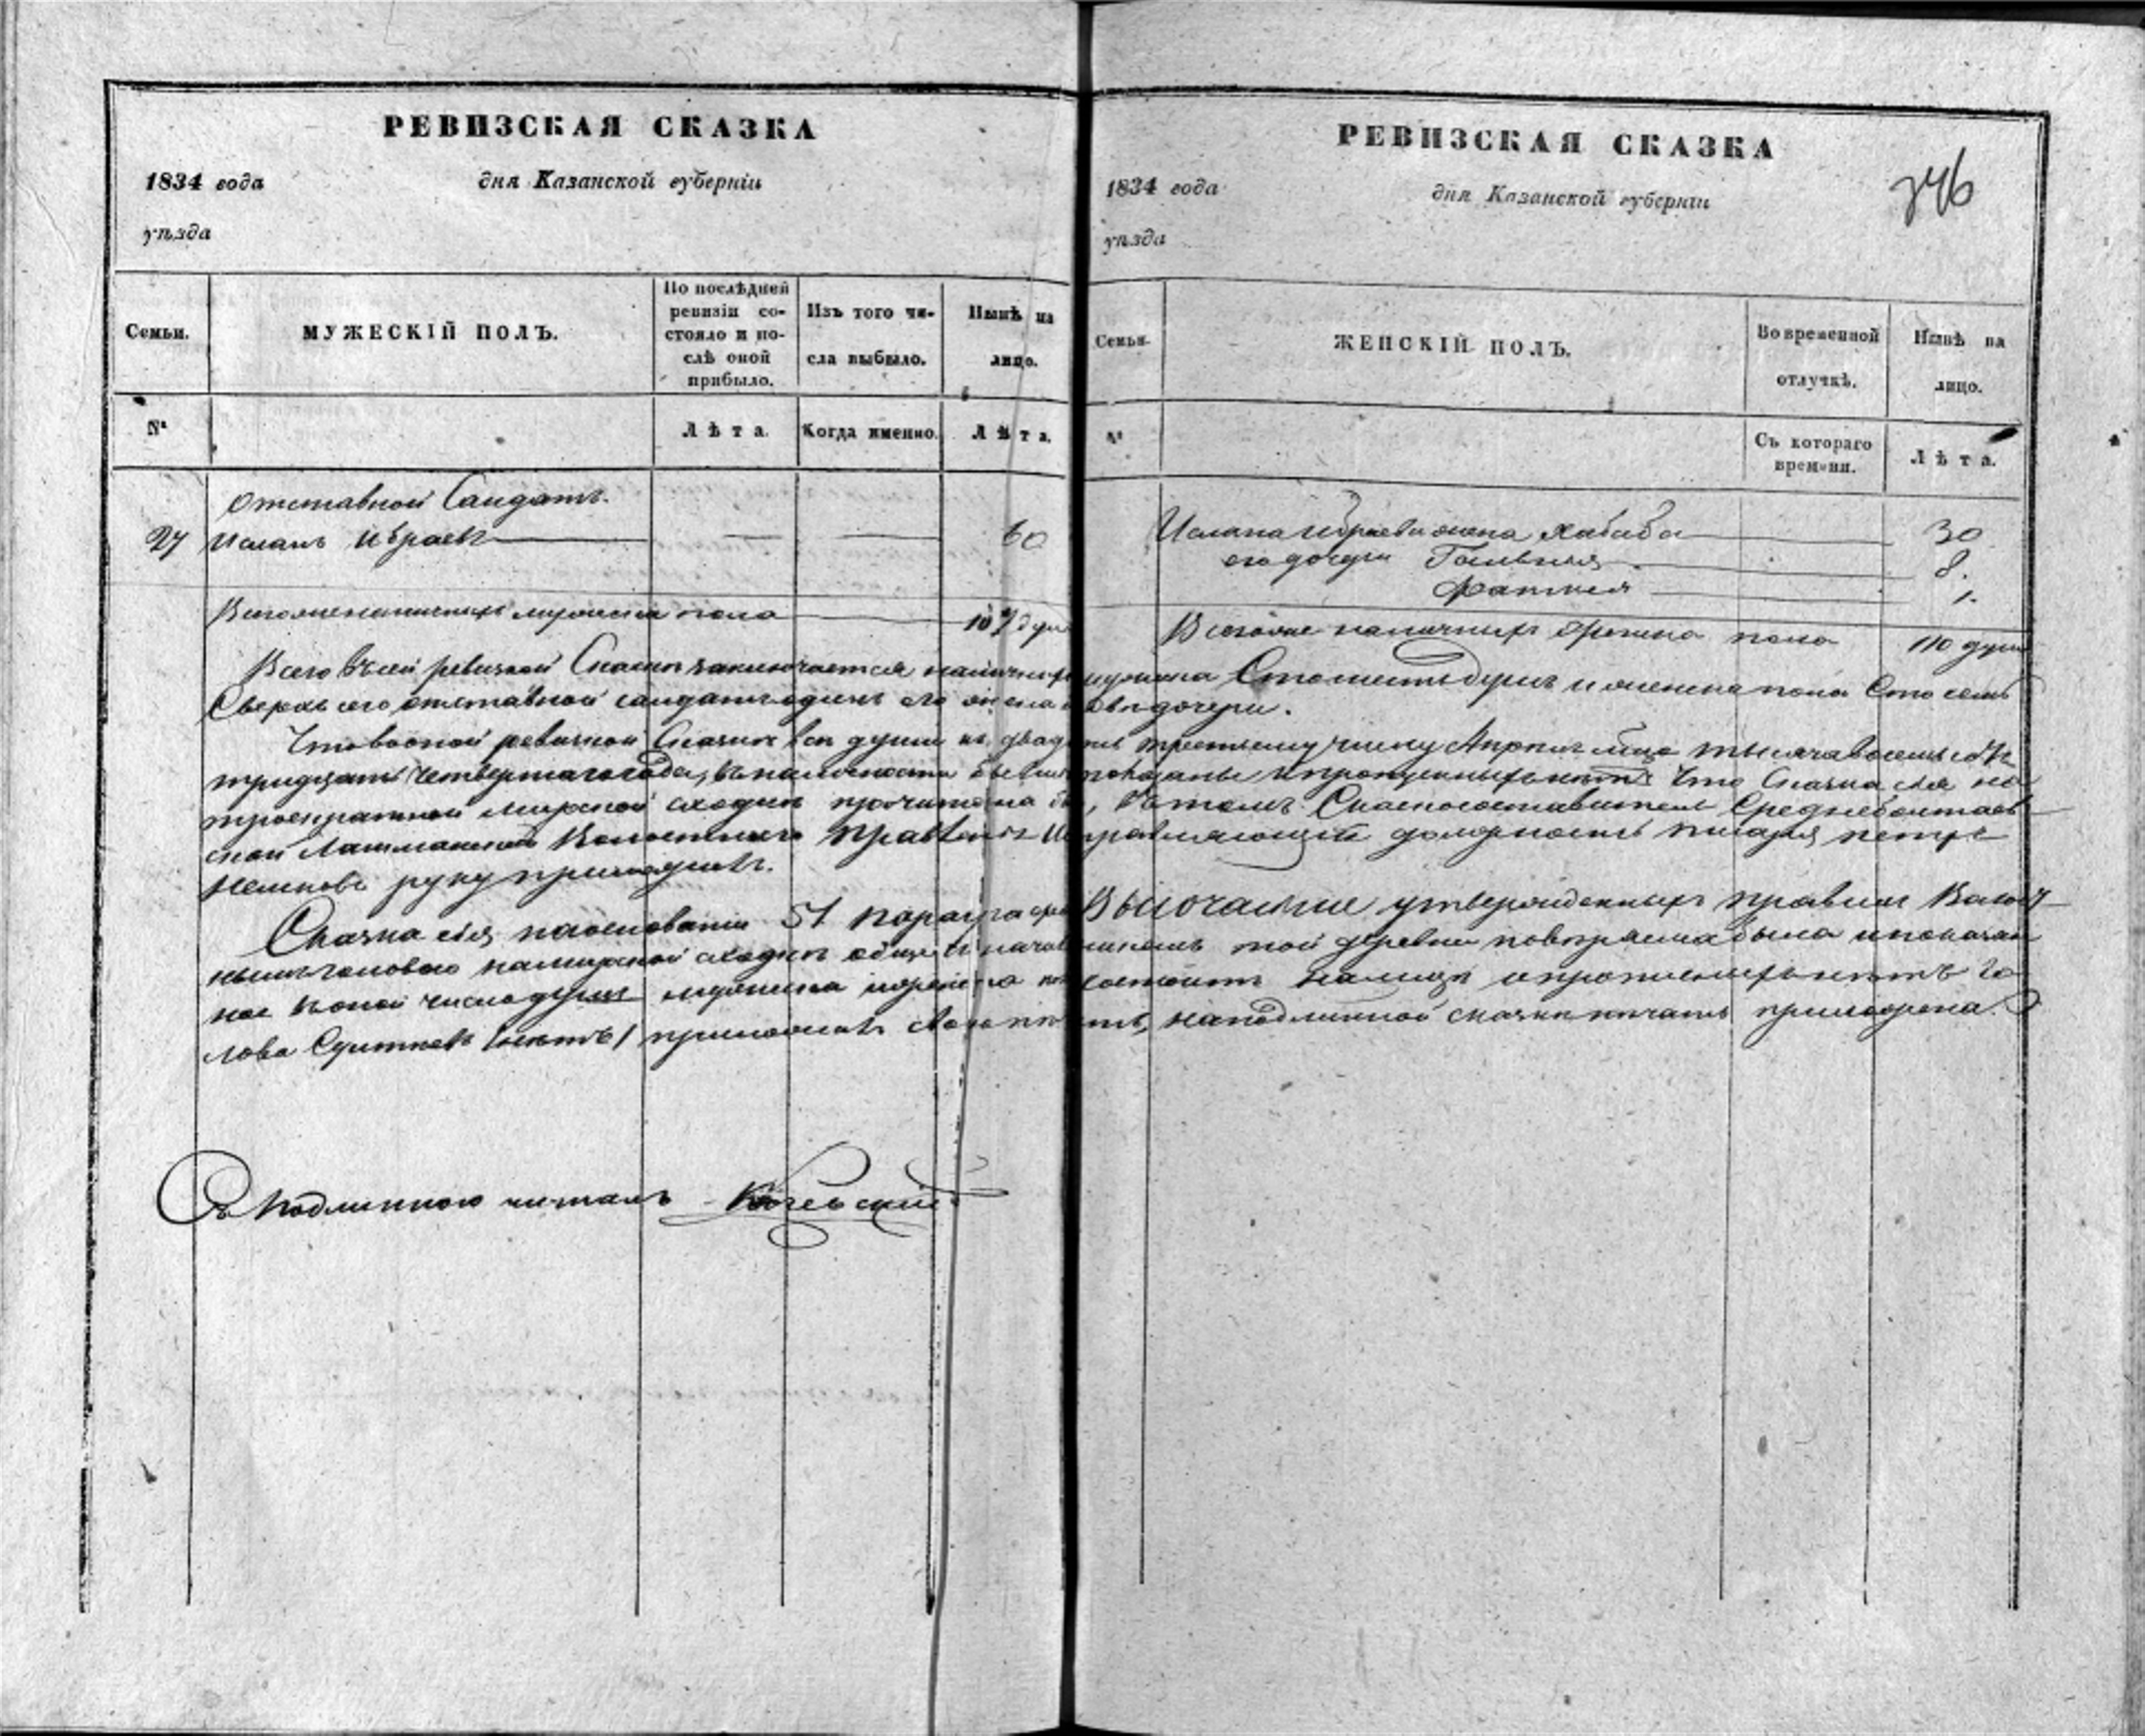 РЕВИЗСКАЯ СКАЗКА
1834 года дня Казанской губерніи
уѣзда
Семьи.
МУЖЕСКІЙ ПОЛЪ.
По послѣдней ревизіи состояло и послѣ оной прибыло.
Изъ того числа выбыло.
Нынѣ на лицо.
№
Лѣта.
Когда именно.
Лѣта.
Отставной Салдатъ.
27 Исланъ Ибраевъ — — — 60
Всего же наличныхъ мужеска пола 107 душъ
РЕВИЗСКАЯ СКАЗКА
346
1834 года дня Казанской губерніи
уѣзда
Семьи.
ЖЕНСКІЙ ПОЛЪ.
Во временной отлучкѣ.
Нынѣ на лицо.
№
Съ котораго времяни.
Лѣта.
Ислана Ибраева жена Хабиба 30
его дочери 8.
1.
Всего же наличныхъ женска пола 110 душъ
Всего въ сей ревизской Сказкѣ заключается наличныхъ мужеска Сто шесть душъ и женска пола Сто семь
Сверхъ сего отставной салдатъ одинъ его жена двѣ дочери.
Что въ оной ревизской Сказкѣ всѣ души къ двадцать третьему числу Апрѣля мѣца тысяча восемь сотъ
тридцать четвертаго года, въ наличности показаны и пропущенныхъ нѣтъ Что Сказка сія на
троекратной мирской сходкѣ прочитана въ томъ Сказкосоставитель
ской Лашманской Волостнаго Правленія Исправляющій должность писаря Петръ
руку приложилъ.
Сказка сія на основаніи 51 параграфа Высочайше утвержденныхъ правилъ
головою на мирской сходкѣ той деревни повѣряема была и показан
ное въ оной число душъ мужеска и женска пола состоитъ на лицо и пропис­ныхъ нѣтъ Го
лова приложилъ свою печать, на подлинной сказкѣ печать приложена.
Съ подлинною читалъ